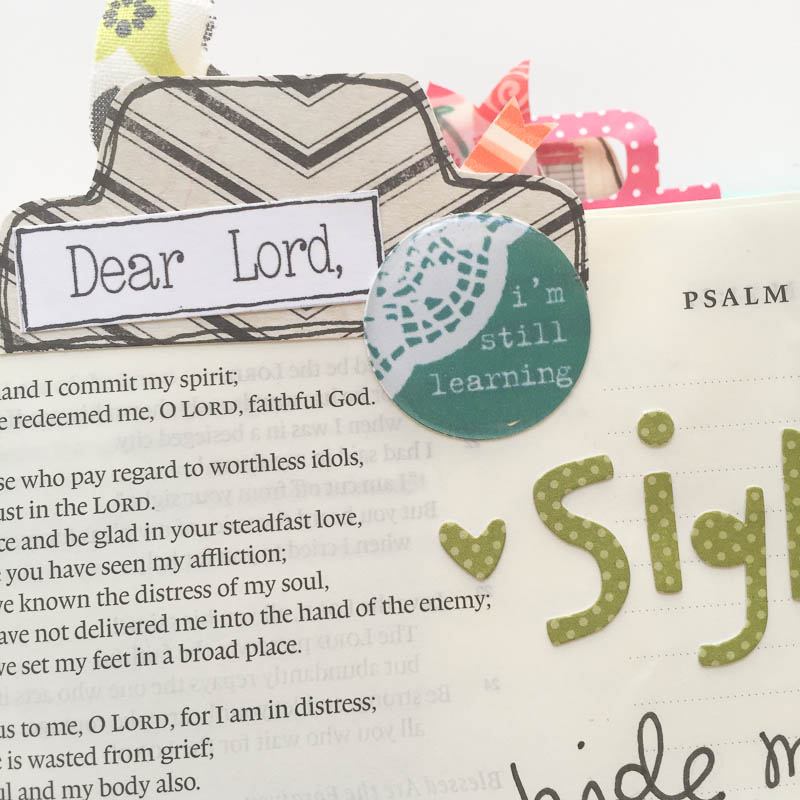 Dear Lord,
i'm
still
learning
PSALM
and I commit my spirit;
redeemed me, O LORD, faithful God.
who pay regard to worthless idols,
in the LORD.
and be glad in your steadfast love,
you have seen my affliction;
known the distress of my soul,
not delivered me into the hand of the enemy;
set my feet in a broad place.
to me, O LORD, for I am in distress;
is wasted from grief;
and my body also.
Sigh
hide